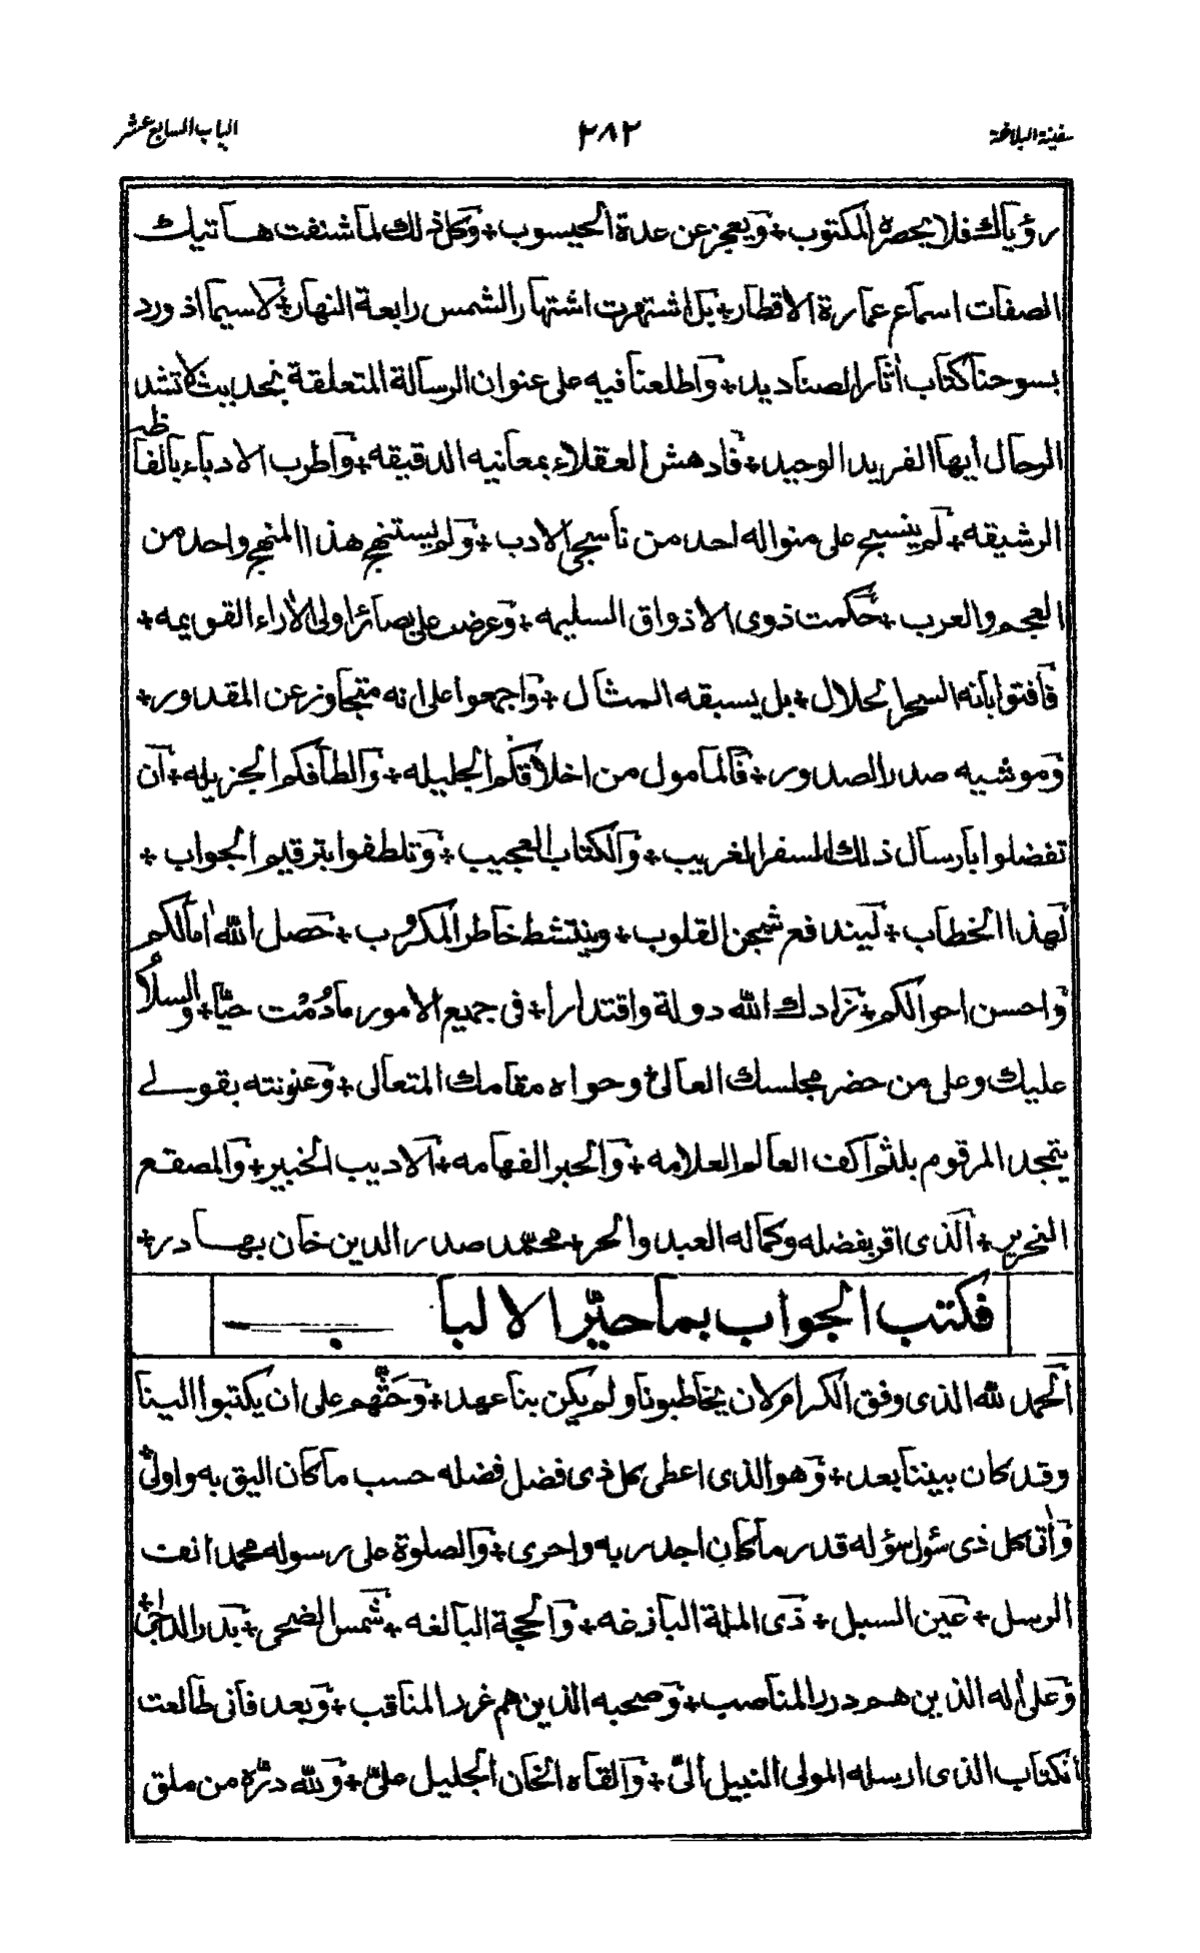 سفينة البلاغة ٢٨٢ الباب السابع عشر
رؤياك فلا يحصره المكتوب + ويعجز عن عدة الحيسوب + وكل ذلك لما شنفت هاتيك
الصفات اسماع عمارة الاقطار + بل اشتهرت اشتهار الشمس رابعة النهار + لاسيما اذ ورد
بسوحنا كتاب اثار الصناديد + واطلعنا فيه على عنوان الرسالة المتعلقة بحديث لا تشد
الرحال ايها الفريد الوحيد + فادهش العقلاء بمعانيه الدقيقه + واطرب الادباء بالفاظه
الرشيقه + لم ينسج على منواله احد من ناسجى الادب + ولم يستنهج هذا المنهج واحد من
العجم والعرب + حكمت ذوى الاذواق السليمه + وعرض على بصائر اولى الاراء القويمه +
فافتوا بانه السحر الحلال + بل يسبقه المثال + واجمعوا على انه متجاوز عن المقدور +
وموشيه صدر الصدور + فالمامول من اخلاقكم الجليله + والطافكم الجزيله + ان
تفضلوا بارسال ذلك السفر الغريب + والكتاب العجيب + وتلطفوا بترقيم الجواب +
لهذا الخطاب + ليندفع شجن القلوب + وينتشط خاطر المكروب + حصل الله امالكم
واحسن احوالكم + زادك الله دولة واقتدارا + فى جميع الامور مادُمْت حيًّا + والسلام
عليك وعلى من حضر مجلسك العالى + وحواه مقامك المتعالى + وعنونته بقولے
يتمجد المرقوم بلثم اكف العالم العلامه + والحبر الفهامه + الاديب الخبير + والمصقع
النحرير + الذى اقر بفضله وكماله العبد والحر + محمّد صدر الدين خان بهادر +
فكتب الجواب بما حيّر الالباب
الحمد لله الذى وفق الكرام لان يخاطبونا ولم يكن بنا عهد + وحثّهم على ان يكتبوا الينا
وقد كان بيننا بعد + وهو الذى اعطى كل ذى فضل فضله حسب ما كان اليق به واولى +
واتى كل ذى سُول سؤله قدر ما كان اجدر به واحرى + والصلوة على رسوله محمد انعت
الرسل + عين السبل + ذى الملة البازغه + والحجة البالغه + شمس الضحى + بدر الداجى +
وعلى اله الذين هم درر المناصب + وصحبه الذين هم غرر المناقب + وبعد فانى طالعت
الكتاب الذى ارسله المولى النبيل الىّ + والقاه الخان الجليل علىّ + ولله درّه من ملق